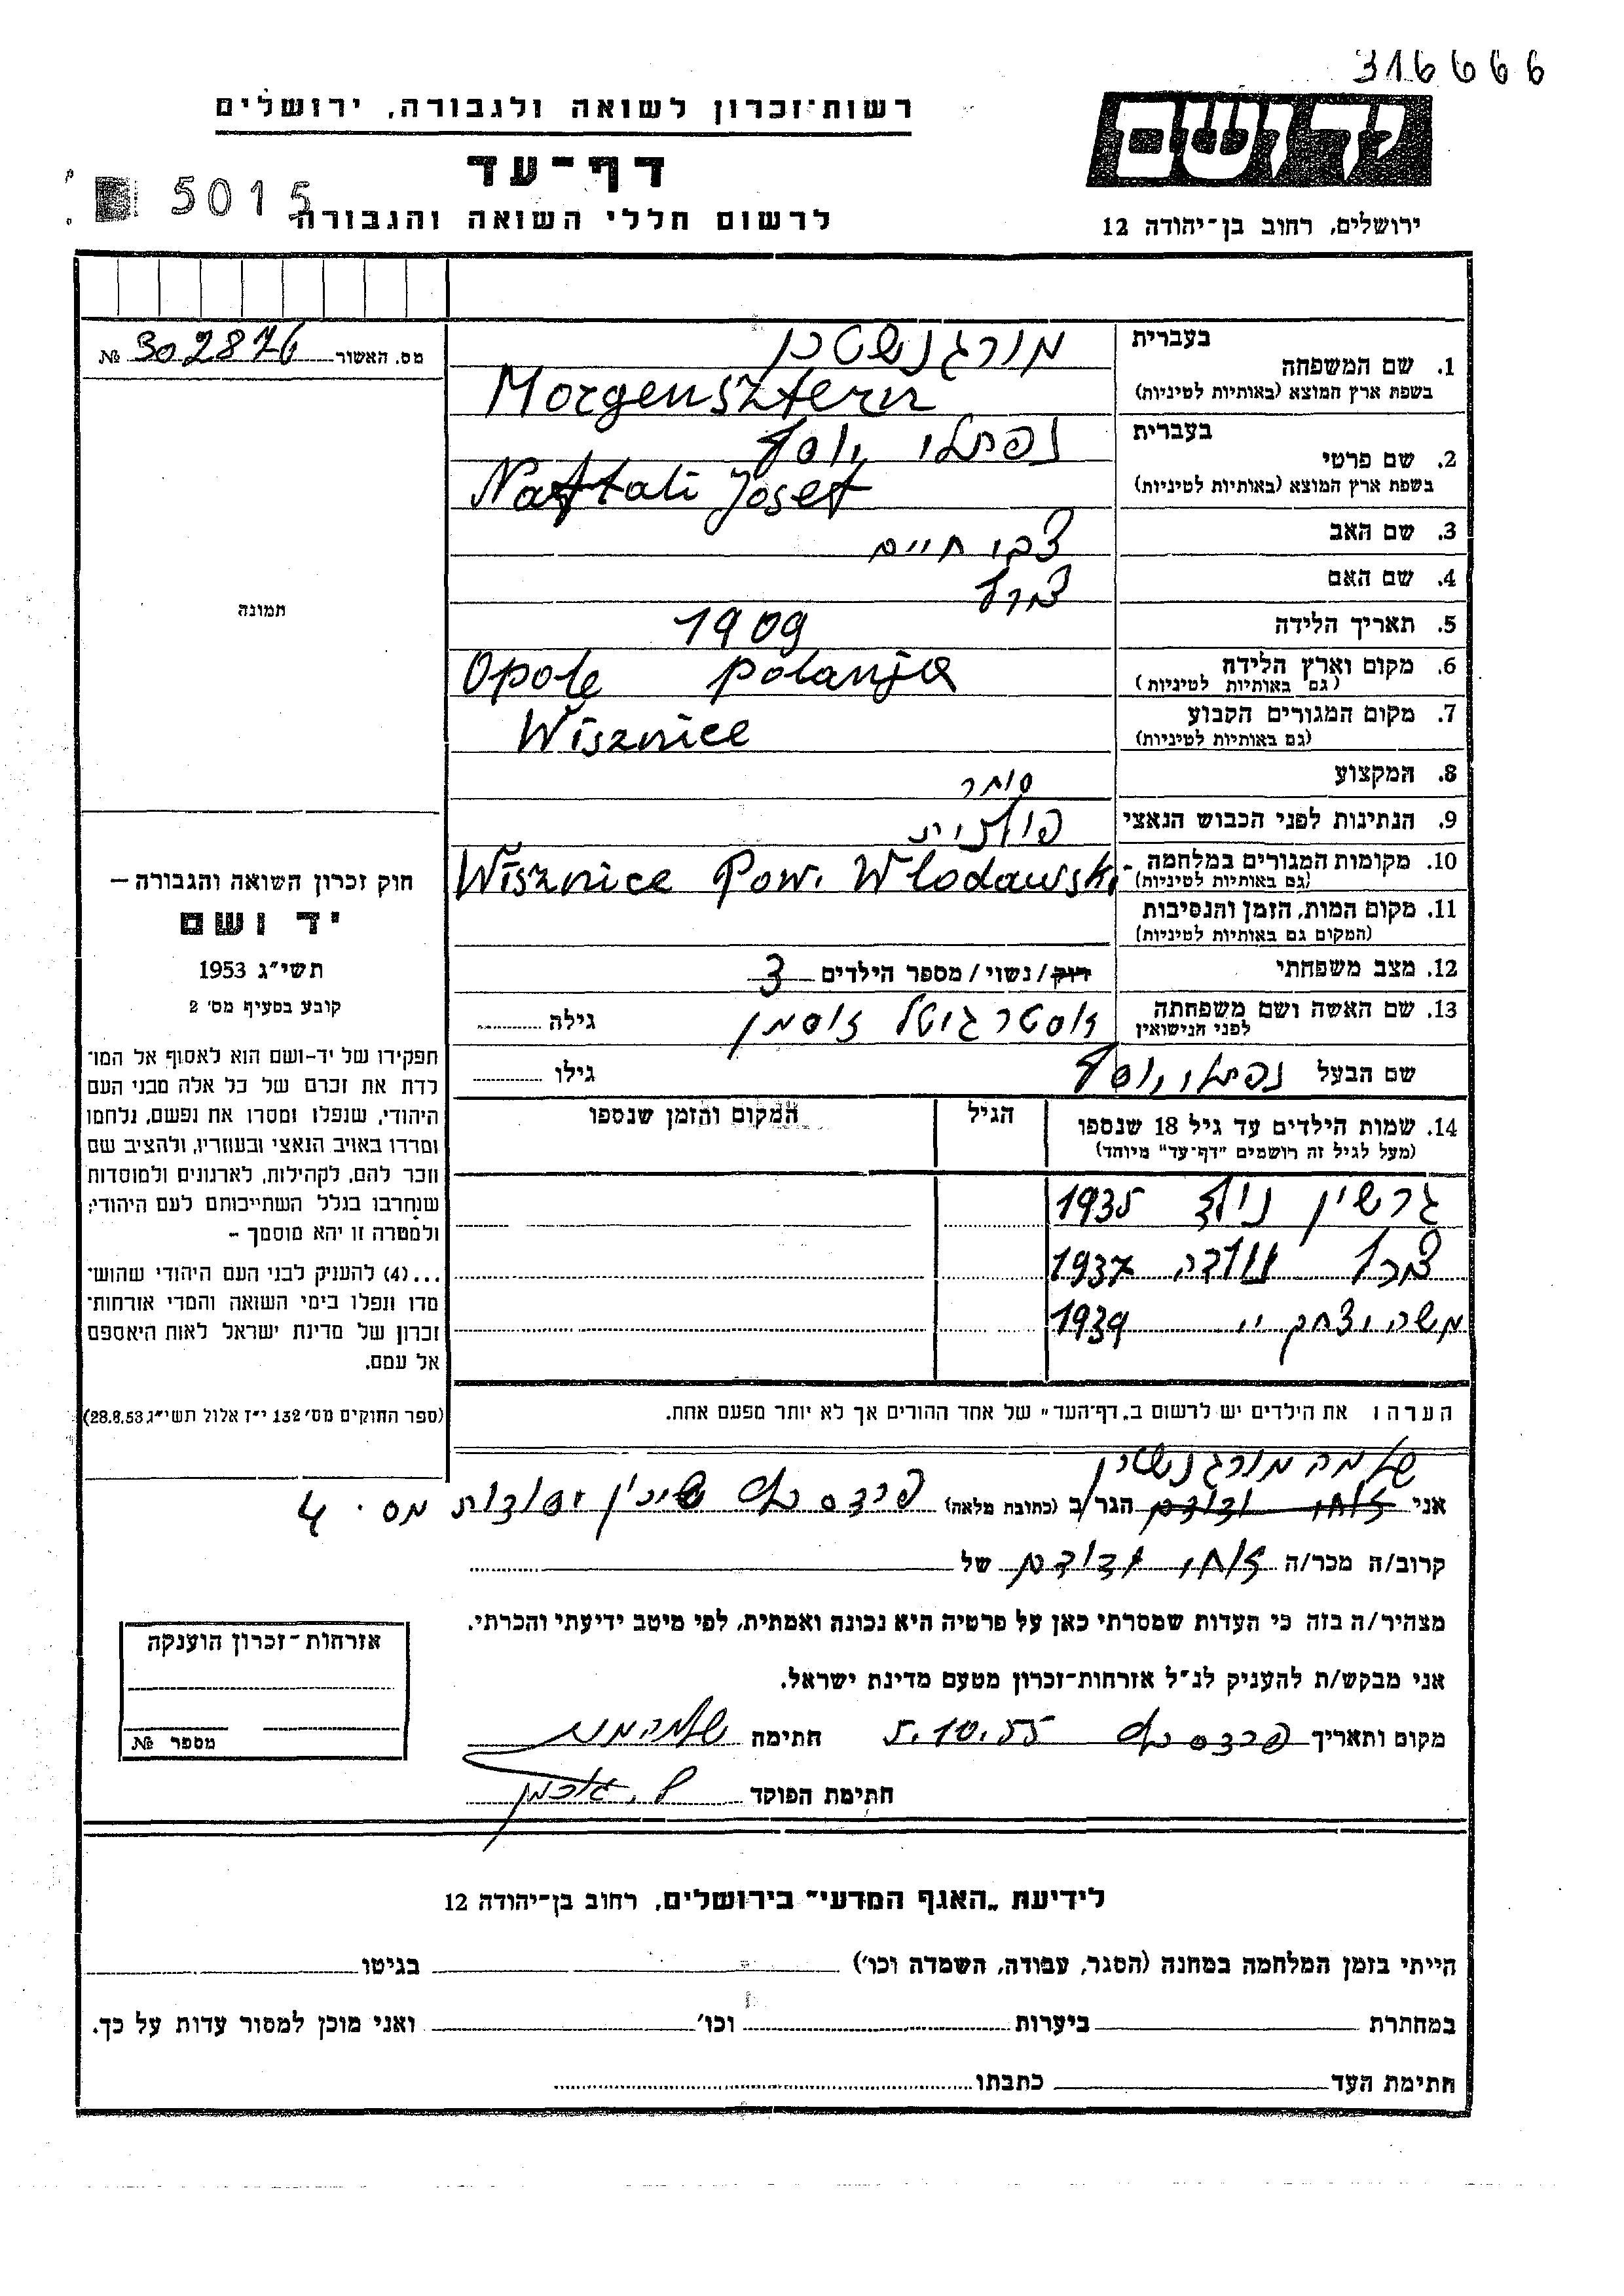 316666
רשות־זכרון לשואה ולגבורה, ירושלים
יד ושם
דף־עד
5015
לרשום חללי השואה והגבורה
ירושלים, רחוב בן־יהודה 12
מס. האשור 302876 №
בעברית
מורגנשטרן
1. שם המשפחה
בשפת ארץ המוצא (באותיות לטיניות)
Morgensztern
בעברית
נפתלי יוסף
2. שם פרטי
בשפת ארץ המוצא (באותיות לטיניות)
Naftali Josef
3. שם האב צבי חיים
4. שם האם
5. תאריך הלידה 1909
6. מקום וארץ הלידה
(גם באותיות לטיניות)
Opole polanja
7. מקום המגורים הקבוע
(גם באותיות לטיניות)
Wisznice
8. המקצוע סוחר
9. הנתינות לפני הכבוש הנאצי פולנית
10. מקומות המגורים במלחמה -
(גם באותיות לטיניות)
Wisznice Pow. Wlodawski
11. מקום המות, הזמן והנסיבות
(המקום גם באותיות לטיניות)
12. מצב משפחתי רוק/נשוי/מספר הילדים 3
13. שם האשה ושם משפחתה
לפני הנישואין
אסתר גיטל זוסמן גילה
שם הבעל נפתלי יוסף גילו
14. שמות הילדים עד גיל 18 שנספו
(מעל לגיל זה רושמים "דף־עד" מיוחד)
הגיל
המקום והזמן שנספו
גרשין נולד 1935
נולדה 1937
משה יצחק " 1939
הערה: את הילדים יש לרשום ב„דף־העד" של אחד ההורים אך לא יותר מפעם אחת.
תמונה
חוק זכרון השואה והגבורה —
יד ושם
תשי"ג 1953
קובע בסעיף מס׳ 2
תפקידו של יד-ושם הוא לאסוף אל המו־
לדת את זכרם של כל אלה מבני העם
היהודי, שנפלו ומסרו את נפשם, נלחמו
ומרדו באויב הנאצי ובעוזריו, ולהציב שם
וזכר להם, לקהילות, לארגונים ולמוסדות
שנחרבו בגלל השתייכותם לעם היהודי;
ולמטרה זו יהא מוסמך –
...(4) להעניק לבני העם היהודי שהוש־
מדו ונפלו בימי השואה והמרי אזרחות־
זכרון של מדינת ישראל לאות היאספם
אל עמם.
(ספר החוקים מס׳ 132 י"ז אלול תשי"ג 28.8.53)
שלמה מורגנשטרן
אני הגר/ב (כתובת מלאה) פרדס כץ שיכון יסודות מס. 4
קרוב/ה מכר/ה של
מצהיר/ה בזה כי העדות שמסרתי כאן על פרטיה היא נכונה ואמתית, לפי מיטב ידיעתי והכרתי.
אני מבקש/ת להעניק לנ"ל אזרחות־זכרון מטעם מדינת ישראל.
מקום ותאריך פרדס כץ 5.10.55 חתימה
חתימת הפוקד
אזרחות־זכרון הוענקה
מספר №
לידיעת „האגף המדעי" בירושלים, רחוב בן־יהודה 12
הייתי בזמן המלחמה במחנה (הסגר, עבודה, השמדה וכו׳) בגיטו
במחתרת ביערות וכו׳ ואני מוכן למסור עדות על כך.
חתימת העד כתבתו